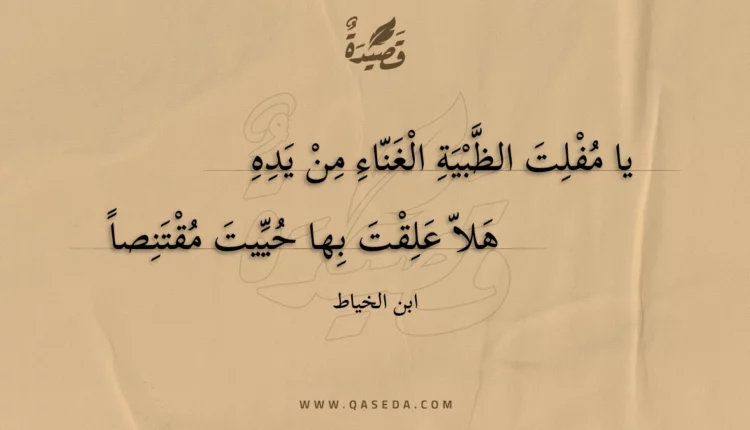 قَصِيْدَةٌ
يا مُفْلِتَ الظَّبْيَةِ الْغَنّاءِ مِنْ يَدِهِ
هَلاّ عَلِقْتَ بِها حُيِّيتَ مُقْتَنِصاً
ابن الخياط
WWW.QASEDA.COM